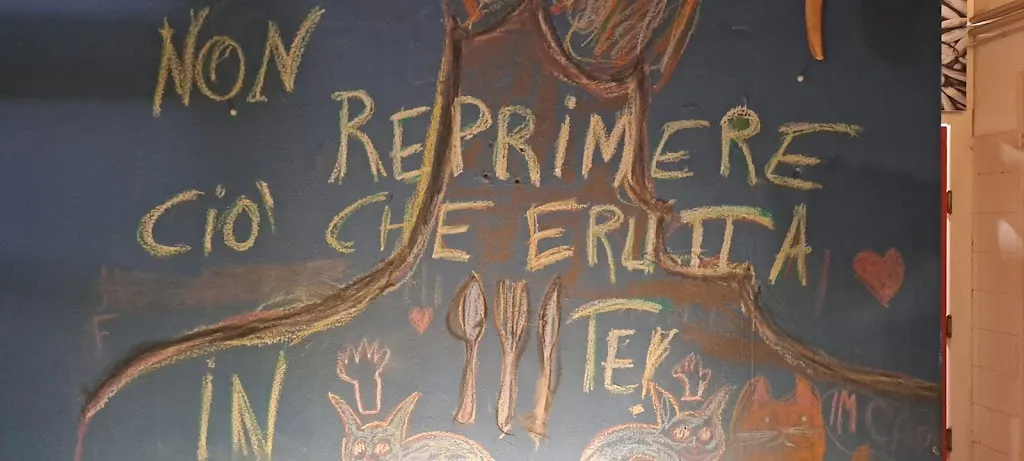 NON
REPRiMERE
Ciò CHE ERUTTA
IN TE
IM